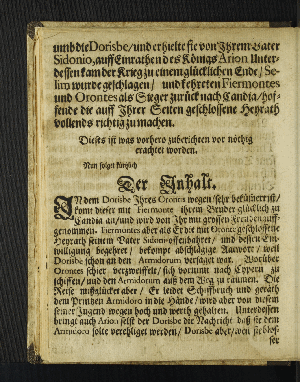 umb die Dorisbe/ und erhielte sie von Ihrem Vater
Sidonio, auff Einrathen des Königs Arion Unter-
dessen kam der Krieg zu einem glücklichen Ende/ Se-
lim wurde geschlagen/ und kehreten Fieremont
und Orontes als Sieger zurück nach Candia/ hof-
fende die auff Ihrer Seiten geschlossene Heyrath
vollends richtig zu machen.
Dieses ist was vorhero zuberichten vor nöthig
erachtet worden.
Nun folget kürtzlich
Der Inhalt.
INdem Dorisbe Ihres Orontes wegen sehr bekümmert ist/
kömt dieser mit Fieremonte ihrem Bruder glücklich zu
Candia an/ und wird von Ihr mit grossen Freuden auff-
genommen. Fieremontes aber als Er die mit Oronte geschlossene
Heyrath seinem Vater Sidonio offenbahret/ und dessen Ein-
willigung begehret/ bekompt abschlägige Antwort/ weil
Dorisbe schon an den Armidorum versaget war. Worüber
Orontes schier verzweiffelt/ sich vornimt nach Cypern zu
schiffen/ und den Armidorum auß dem Weg zu räumen. Die
Reise mißglücket aber/ Er leidet Schiffbruch und geräth
dem Printzen Armidoro in die Hände/ wird aber von diesem
seiner Jugend wegen hoch und werth gehalten. Unterdessen
bringt auch Arion selst der Dorisbe die Nachricht daß sie dem
Armidoro solte verehliget werden/ Dorisbe aber/ weil sie blos-
ser